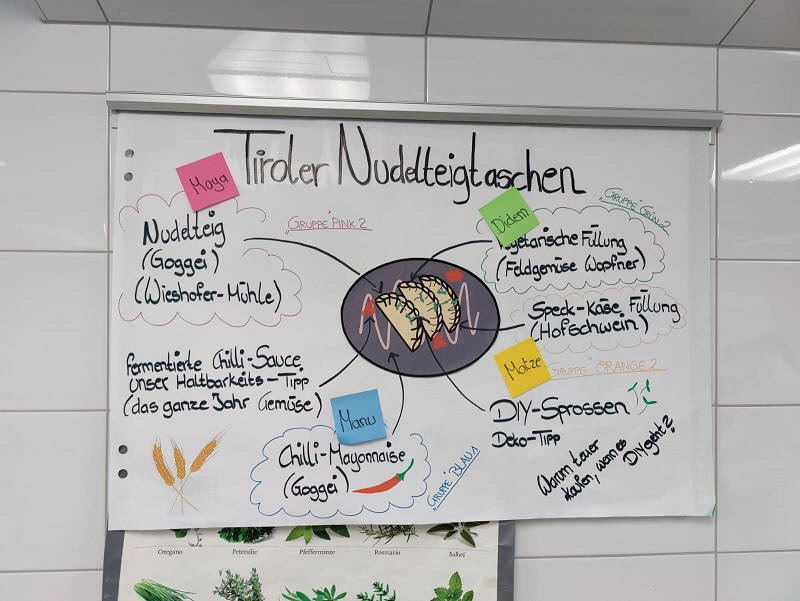 Tiroler Nudelteigtaschen
Maya
Nudelteig
(Goggei)
(Wieshofer-Mühle)
"GRUPPE" PINK 2
Didem
"GRUPPE" GRÜN 2
Füllung
(Feldgemüse Wopfner)
Speck-Käse Füllung
(Hofschwein)
Matze
GRUPPE" ORANGE 2
fermentierte Chilli-Sauce
unser Haltbarkeits-Tipp
(das ganze Jahr Gemüse)
Manu
Chilli-Mayonnaise
(Goggei)
"GRUPPE" BLAU 1
DIY-Sprossen
Deko-Tipp
Warum teuer
kaufen, wenn es
DIY geht?
Oregano Petersilie Pfefferminze Rosmarin Salbei